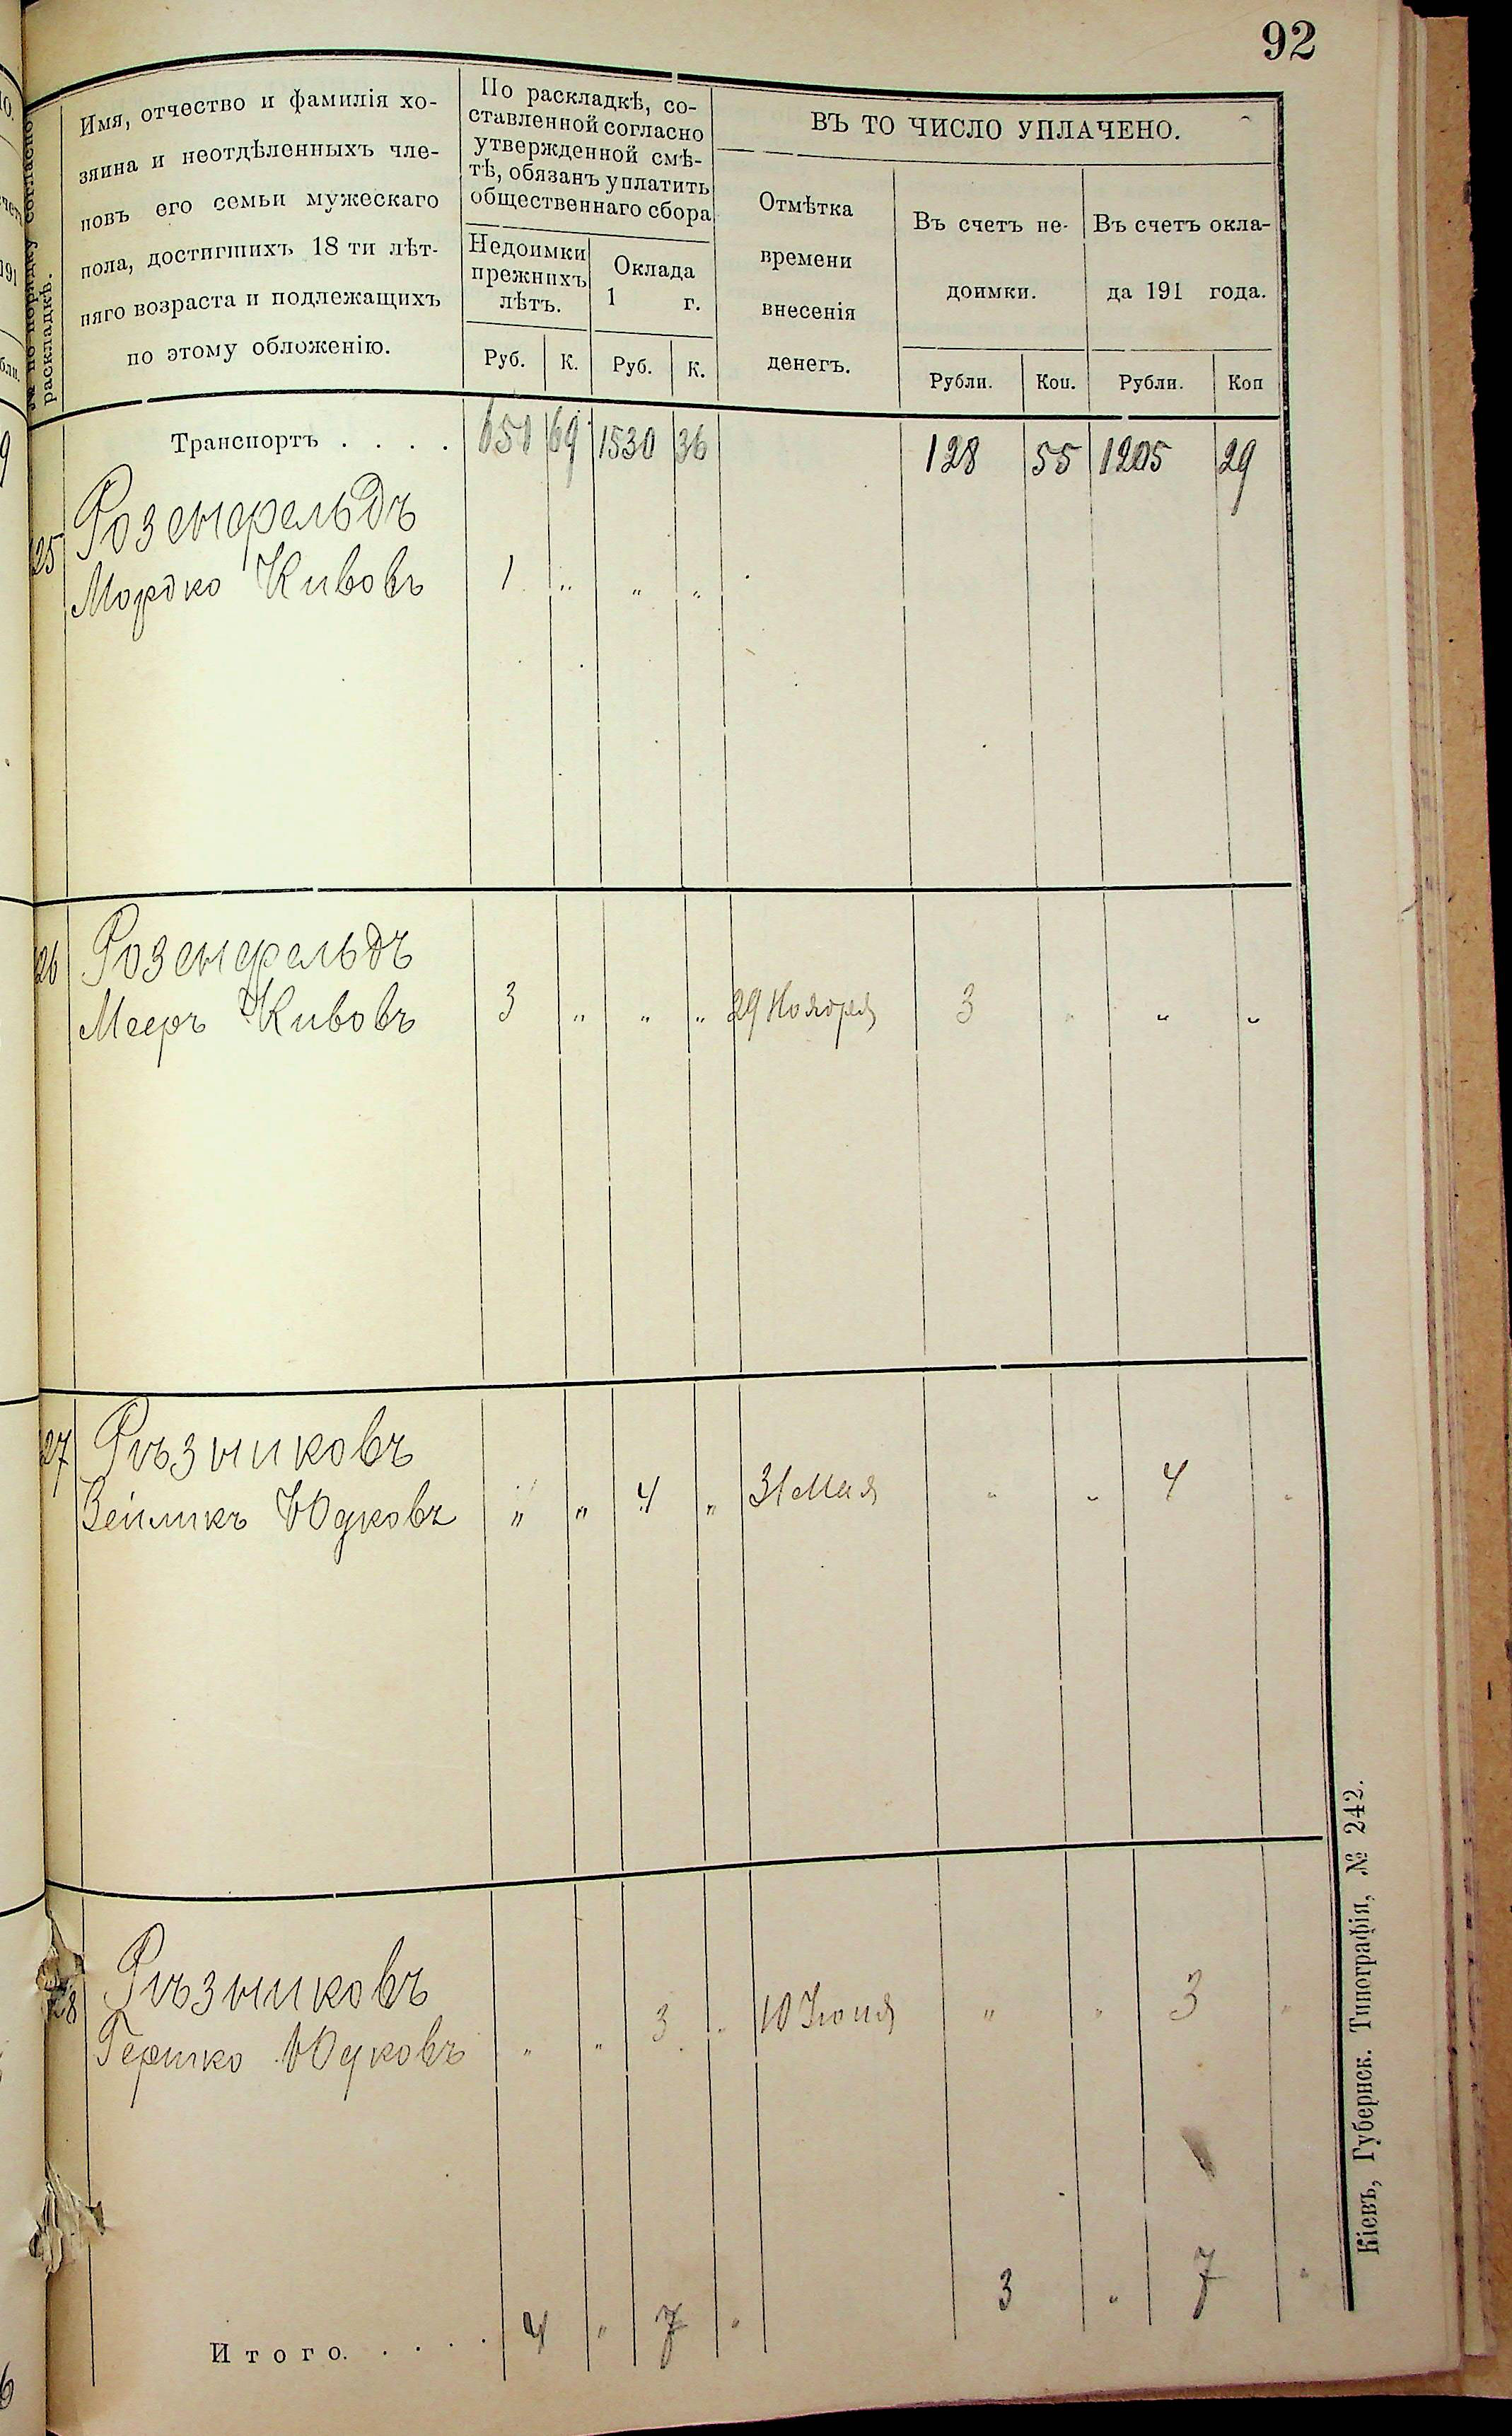 92
№ по порядку согласно
раскладкѣ.
Имя, отчество и фамилія хо-
зяина и неотдѣленныхъ чле-
новъ его семьи мужескаго
пола, достигшихъ 18 ти лѣт-
няго возраста и подлежащихъ
по этому обложенію.
По раскладкѣ, со-
ставленной согласно
утвержденной смѣ-
тѣ, обязанъ уплатить
общественнаго сбора
Недоимки
прежнихъ
лѣтъ.
Оклада
1 г.
Руб. К. Руб. К.
ВЪ ТО ЧИСЛО УПЛАЧЕНО.
Отмѣтка
времени
внесенія
денегъ.
Въ счетъ не-
доимки.
Въ счетъ окла-
да 191 года.
Рубли. Коп. Рубли. Коп
Транспортъ . . . . 651 69 1530 36 128 55 1205 29
Розенфельдъ
125 Мордко Кивовъ 1 " " "
Розенфельдъ
126 Мееръ Кивовъ 3 " " " 29 Ноября 3 " " "
Рѣзниковъ
127 Зейликъ Юдковъ " " 4 " 31 Мая " " 4 "
Рѣзниковъ
128 Гершко Юдковъ " " 3 " 10 Іюня " " 3 "
Итого. . . . . 4 " 7 " 3 " 7 "
Кіевъ, Губернск. Типографія, № 242.